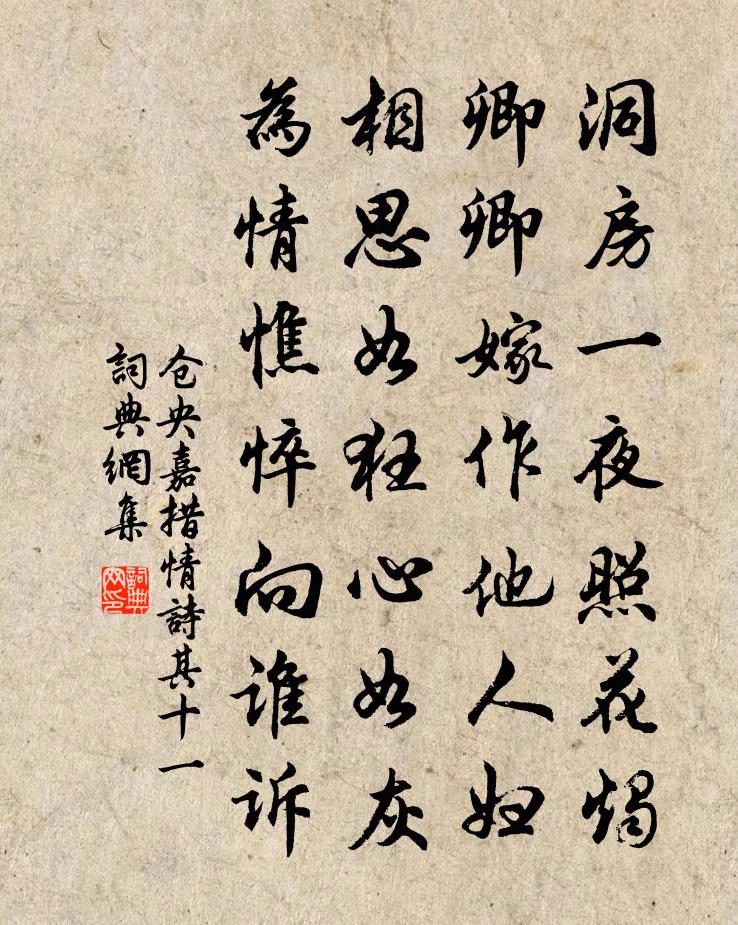 洞房一夜照花燭
卿卿嫁作他人婦
相思如狂心如灰
為情憔悴向誰訴
仓央嘉措情詩其十一
詞典網集
詞典网印